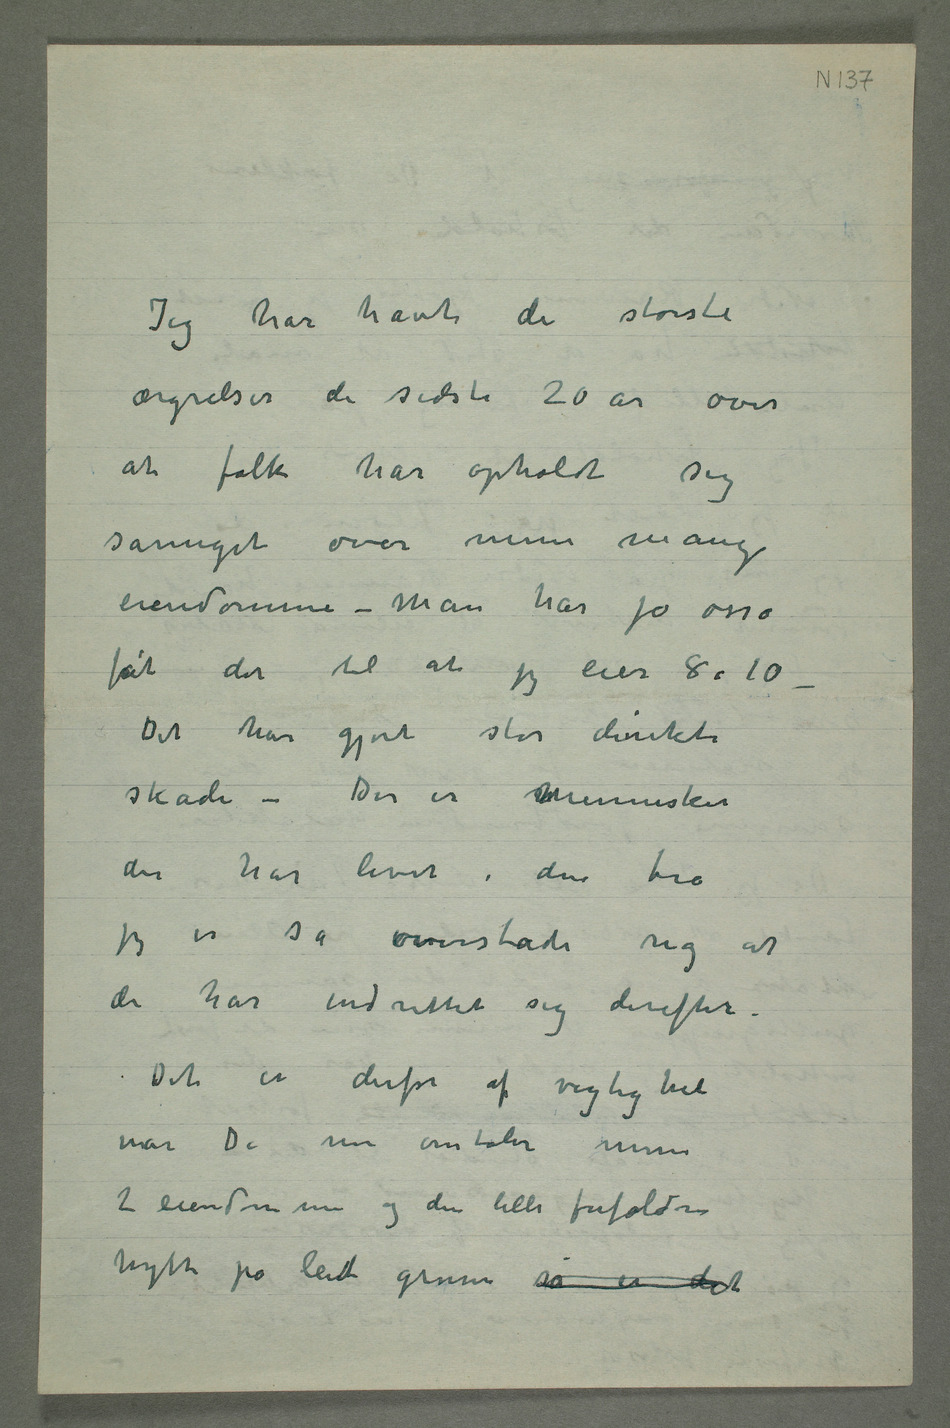 N 137
Jeg har havt de størst​e
ærgrelser de sidste 20 år over
at folk har opholdt sig
sa meget over mine mange
eiendomme – Man har jo osså
fåt det til at jeg eier 8 a 10 –
Det har gjort stor direkte
skade – Der er Mennesker
der har levet i den tro
jeg er så overstadi rig at
de har indrettet sig derefter.
Det er derfor af vigtighet
når De nu omtaler mine
2 eiendomme og den lille forfaldne
hytte på leiet grunn så er det